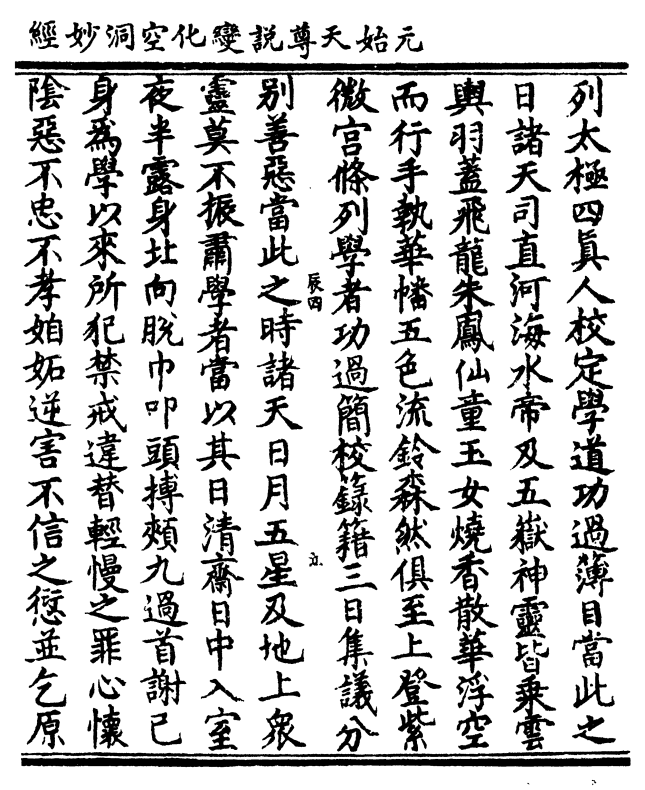 元始天尊說變化空洞妙經
列太極四眞人校定學道功過簿目當此之
日諸天司直河海水帝及五嶽神靈皆乘雲
輿羽蓋飛龍朱鳳仙童玉女燒香散華浮空
而行手執華幡五色流鈴森然俱至上登紫
微宮條列學者功過簡校籙籍三日集議分
辰四
別善惡當此之時諸天日月五星及地上衆
靈莫不振肅學者當以其日清齋日中入室
夜半露身北向脫巾叩頭搏頰九過首謝己
身爲學以來所犯禁戒違替輕慢之罪心懷
陰惡不忠不孝妬逆害不信之愆並乞原